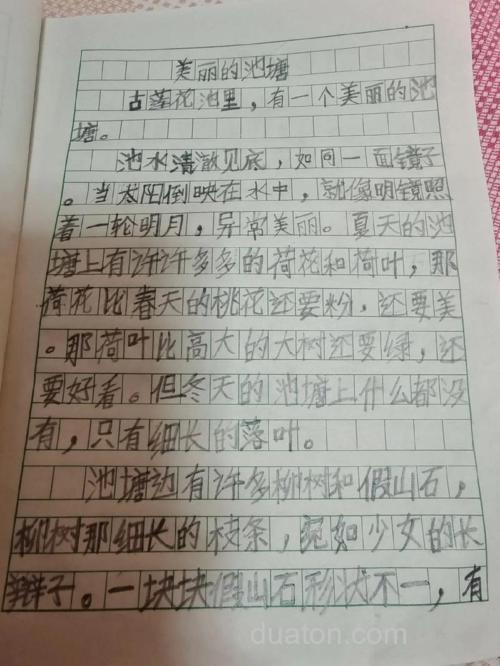 美丽的池塘
古莲花池里，有一个美丽的池
塘。
池水清澈见底，如同一面镜子
。当太阳倒映在水中，就像明镜照
着一轮明月，异常美丽。夏天的池
塘上有许许多多的荷花和荷叶，那
荷花比春天的桃花还要粉，还要美
。那荷叶比高大的大树还要绿，还
要好看。但冬天的池塘上什么都没
有，只有细长的落叶。
池塘边有许多柳树和假山石，
柳树那细长的枝条，宛如少女的长
辫子。一块块假山石形状不一，有
duaton.com